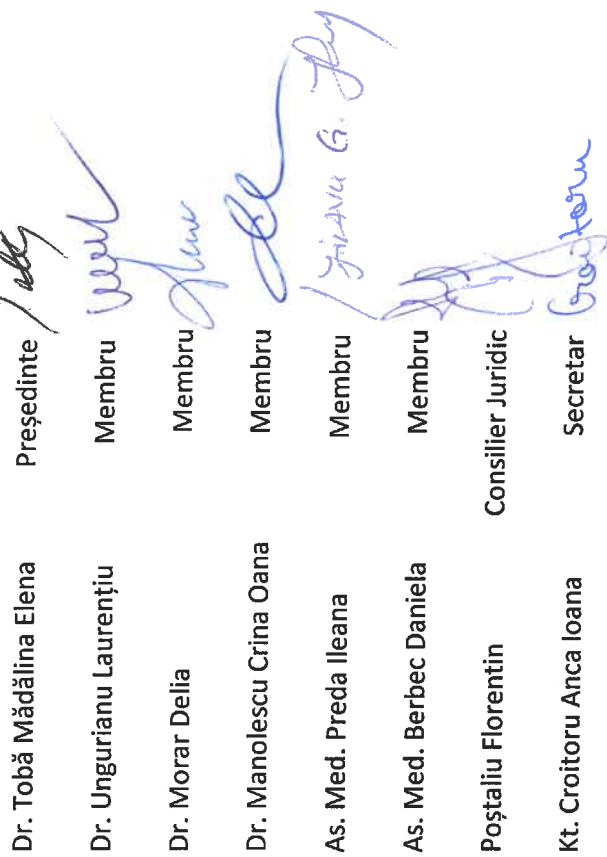 Dr. Tobă Mădălina Elena Președinte
Dr. Ungurianu Laurențiu Membru
Dr. Morar Delia Membru
Dr. Manolescu Crina Oana Membru
As. Med. Preda Ileana Membru
As. Med. Berbec Daniela Membru
Poștaliu Florentin Consilier Juridic
Kt. Croitoru Anca Ioana Secretar